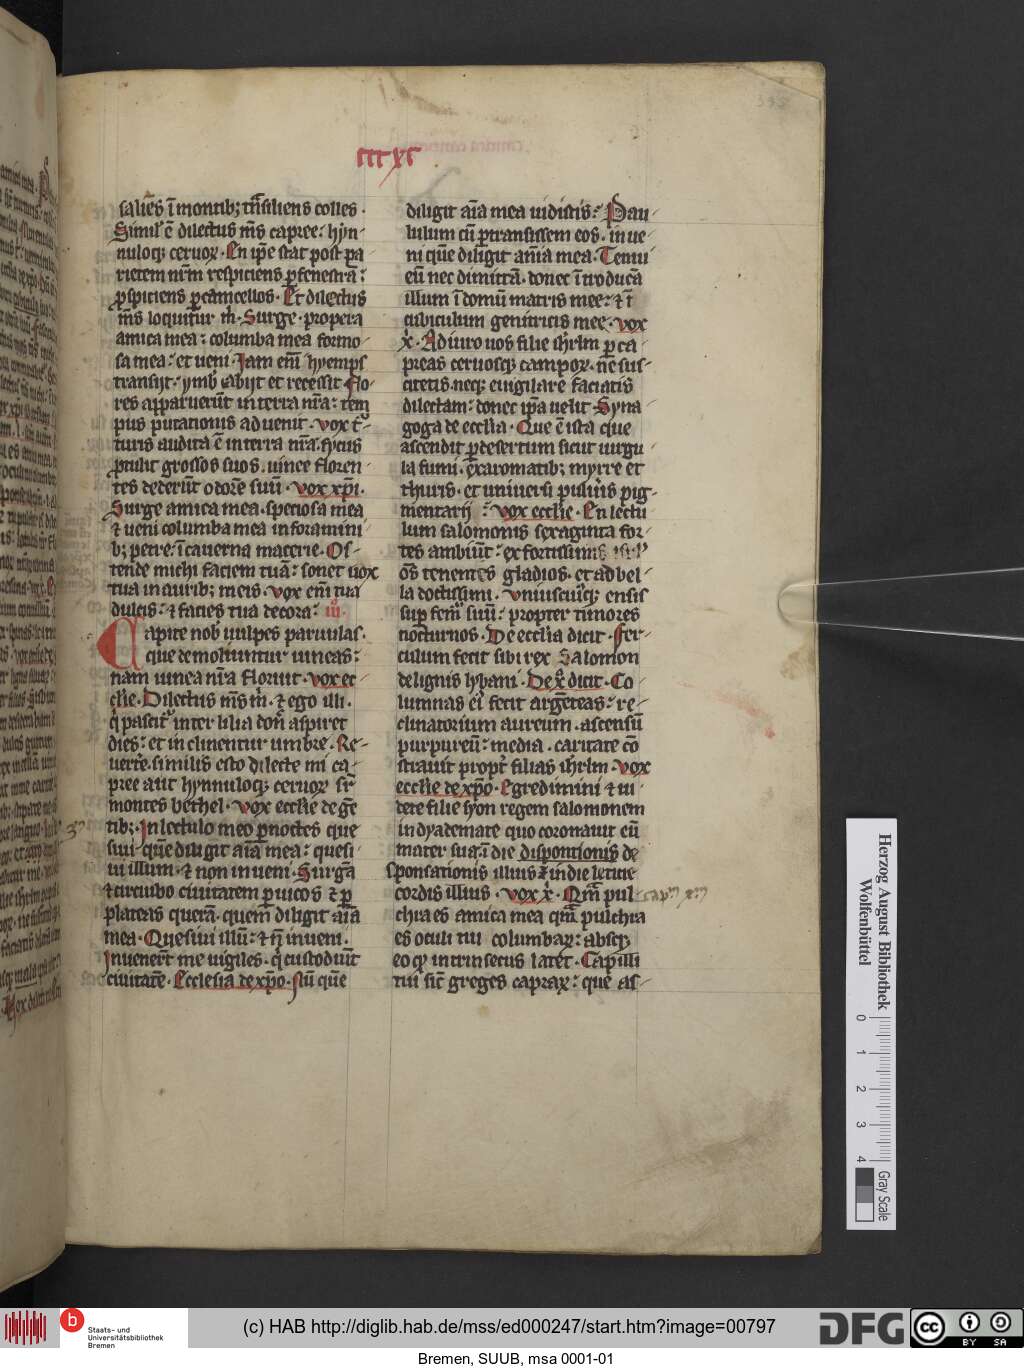 cccxc
saliēs ī montib; trāsiliens colles .
Simil' ē dilectus m̄s capree: hyn-
nuloq; ceruoꝝ . En ip̄e stat post pa-
rietem nr̄m respiciens ꝑ fenestra:
ꝓspiciens ꝑ cancellos . Et dilectus
m̄s loquitur m̍ . Surge . propera
amica mea: columba mea formo-
sa mea: et ueni . Jam em̄ hyemps
transijt: ymb' abijt et recessit flo-
res apparuerūt in terra nr̄a: tem-
pus putationis aduenit . vox t'-
turis audita ē in terra nr̄a. ficus
ꝓtulit grossos suos . uinee floren-
tes dederūt odorē suū . vox xp̄i .
Surge amica mea . speciosa mea
⁊ ueni columba mea in foramini-
b; petre: ī cauerna macerie . Os-
tende michi faciem tuā: sonet uox
tua in aurib; meis . vox em̄ tua
dulcis: ⁊ facies tua decora:
Capite nob' uulpes paruulas .
que demoliuntur uineas:
nam uinea nr̄a floruit . vox ec-
clīe . Dilectus m̄s m̍ . ⁊ ego illi .
q̍ pascit' inter lilia don̄ aspiret
dies: et inclinentur umbre . Re-
uerte. similis esto dilecte mi ca-
pree aut hynnuloq; ceruoꝝ sr̄
montes bethel . vox ecclīe de gē-
tib;. In lectulo meo ꝑ noctes que-
siui quē diligit aīa mea: quesi-
ui illum . ⁊ non inueni . Surgā
⁊ circuibo ciuitatem ꝑ uicos ⁊ ꝑ
plateas querā . quem diligit aīa
mea . Quesiui illū: ⁊ n̄ inueni .
Inuenerūt me uigiles . q̍ custodiūt
ciuitatē . Ecclesia de xp̄o . Nū quē
diligit aīa mea uidistis: Pau-
lulum cū ꝑtransissem eos . inue-
ni quē diligit aīa mea . Tenui
eū nec dimittā . donec ītroducā
illum ī domū matris mee: ⁊ ī
cubiculum genitricis mee . vox
x̍ . Adiuro uos filie ih'rlm ꝑ ca-
preas ceruosq; campoꝝ . ne sus-
citetis neq; euigilare faciatis
dilectam: donec ip̄a uelit . Syna-
goga de eccl̄ia . Que ē ista que
ascendit ꝑ desertum sicut uirgu-
la fumi . ex aromatib; myrre et
thuris . et uniuersi pulu'is pig-
mentarij: vox ecclīe . En lectu-
lum salomonis sexaginta for-
tes ambiūt: ex fortissimis isrl'
o̅s tenentes gladios . et ad bel-
la doctissimi . vniuscui'q; ensis
sup fem' suū: propter timores
nocturnos . De eccl̄ia dicit . fer-
culum fecit sibi rex Salomon
de lignis lybani . De x̍ dicit . Co-
lumnas ei' fecit argēteas: re-
clinatorium aureum . ascensū
purpureū: media . caritate cō-
strauit propt' filias ih'rlm . vox
ecclīe de xp̄o . Egredimini ⁊ ui-
dete filie syon regem salomonem
in dyademate quo coronauit eū
mater sua. ī die dispontionis de-
sponsationis illius ⁊ in die leticie
cordis illius . vox x̍ . Qm̄ pul-
chra es amica mea qm̄ pulchra
es oculi tui columbaꝝ: absq;
eo qͥ intrinsecus latet . Capilli
tui sic̄ greges capraꝝ: que as-
Herzog August Bibliothek
Wolfenbüttel
0 1 2 3 4
Gray Scale
b
Staats- und
Universitätsbibliothek
Bremen
(c) HAB http://diglib.hab.de/mss/ed000247/start.htm?image=00797
DFG
cc
BY SA
Bremen, SUUB, msa 0001-01